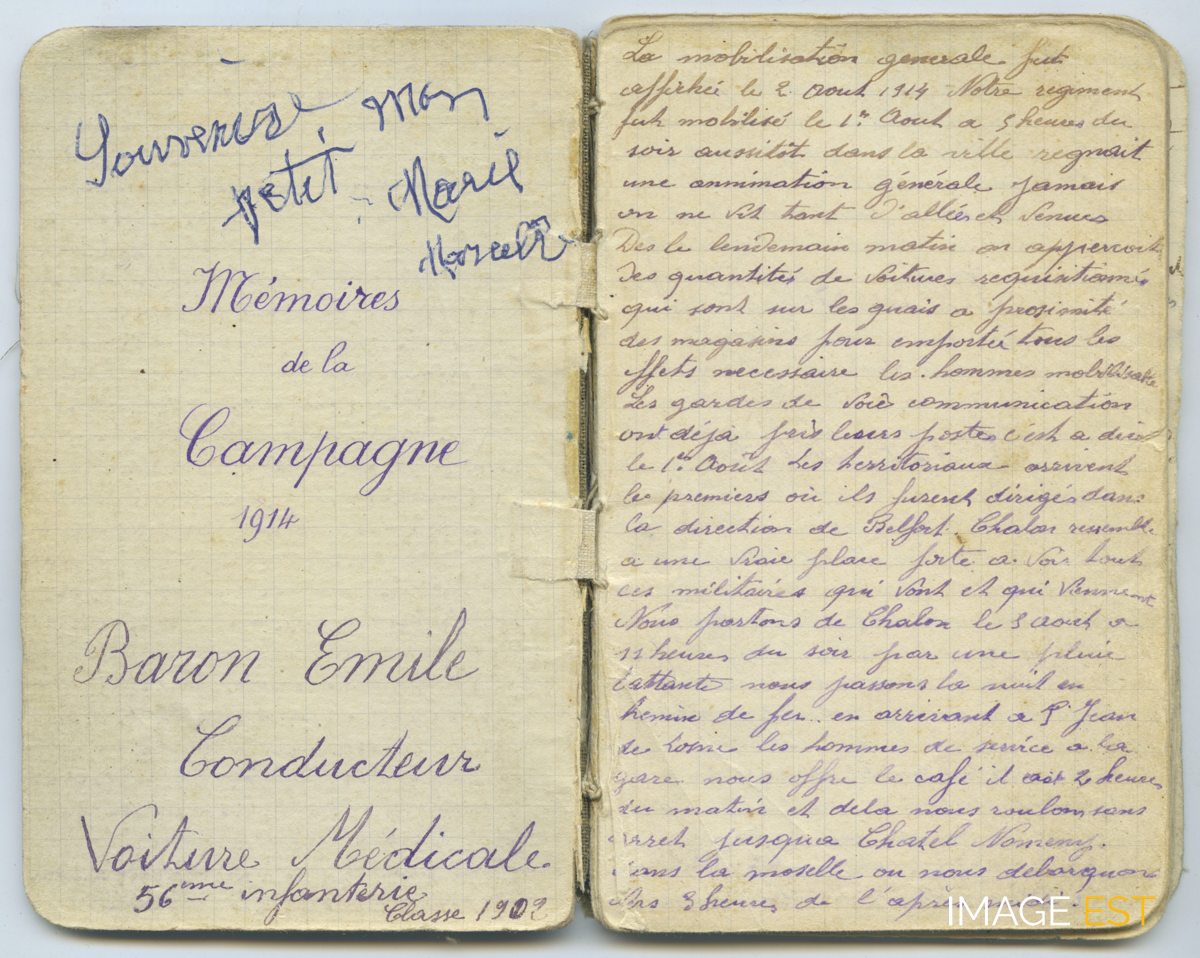 Souvenirse Mon
petit Marcel
Mémoires
de la
Campagne
1914
Baron Emile
Conducteur
Voiture Médicale
56ème infanterie
Classe 1902
La mobilisation generale fut
affichée le 2 Aout 1914 Notre regiment
fut mobilisé le 1er Aout a 5 heures du
soir aussitôt dans la ville regnait
une annimation générale jamais
on ne vit tant d'allées et venues
Des le lendemain matin on appercoit
des quantités de voitures requisitionnés
qui sont sur les quais a proximité
des magasins pour emporté tous les
effets necessaire les hommes mobilisable
Les gardes de voie communication
ont déja pris leurs postes c'est a dire
le 1er Août Les territoriaux arrivent
les premiers où ils furent dirigés dans
la direction de Belfort. Chalon ressemble
a une vraie place forte a voir tout
ces militaires qui vont et qui viennent
Nous partons de Chalon le 5 Aout a
11 heures du soir par une pluie
battante nous passons la nuit en
chemin de fer.. en arrivant a St Jean
de Losne les hommes de service a la
gare nous offre le café il est 2 heures
du matin et dela nous roulons sans
arret jusqua Chatel Nomeny.
dans la moselle ou nous debarquons
vers 3 heures de l'après midi.
IMAGE EST